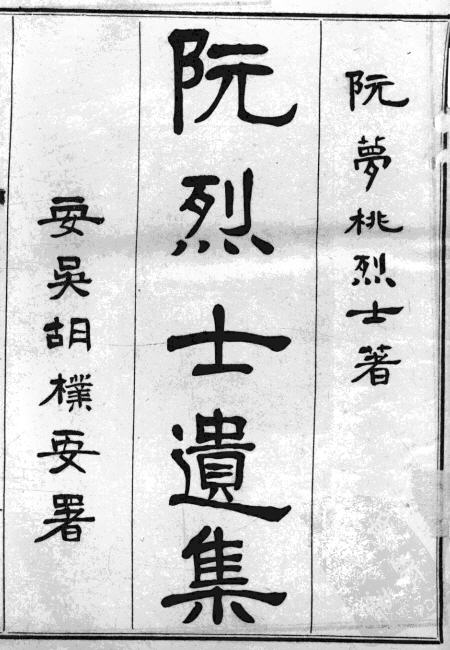 阮夢桃烈士著
阮烈士遺集
安吳胡樸安署